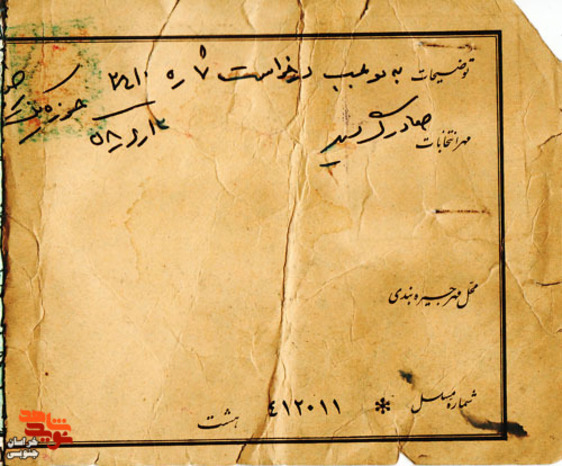 توضیحات به موجب درخواست شماره ۲۴۱۰
مهر انتخابات صادر گردید
محل مهر جیره بندی
شماره مسلسل * ۴۱۲۰۱۱ هشت
نوید شاهد
خراسان
جنوبی